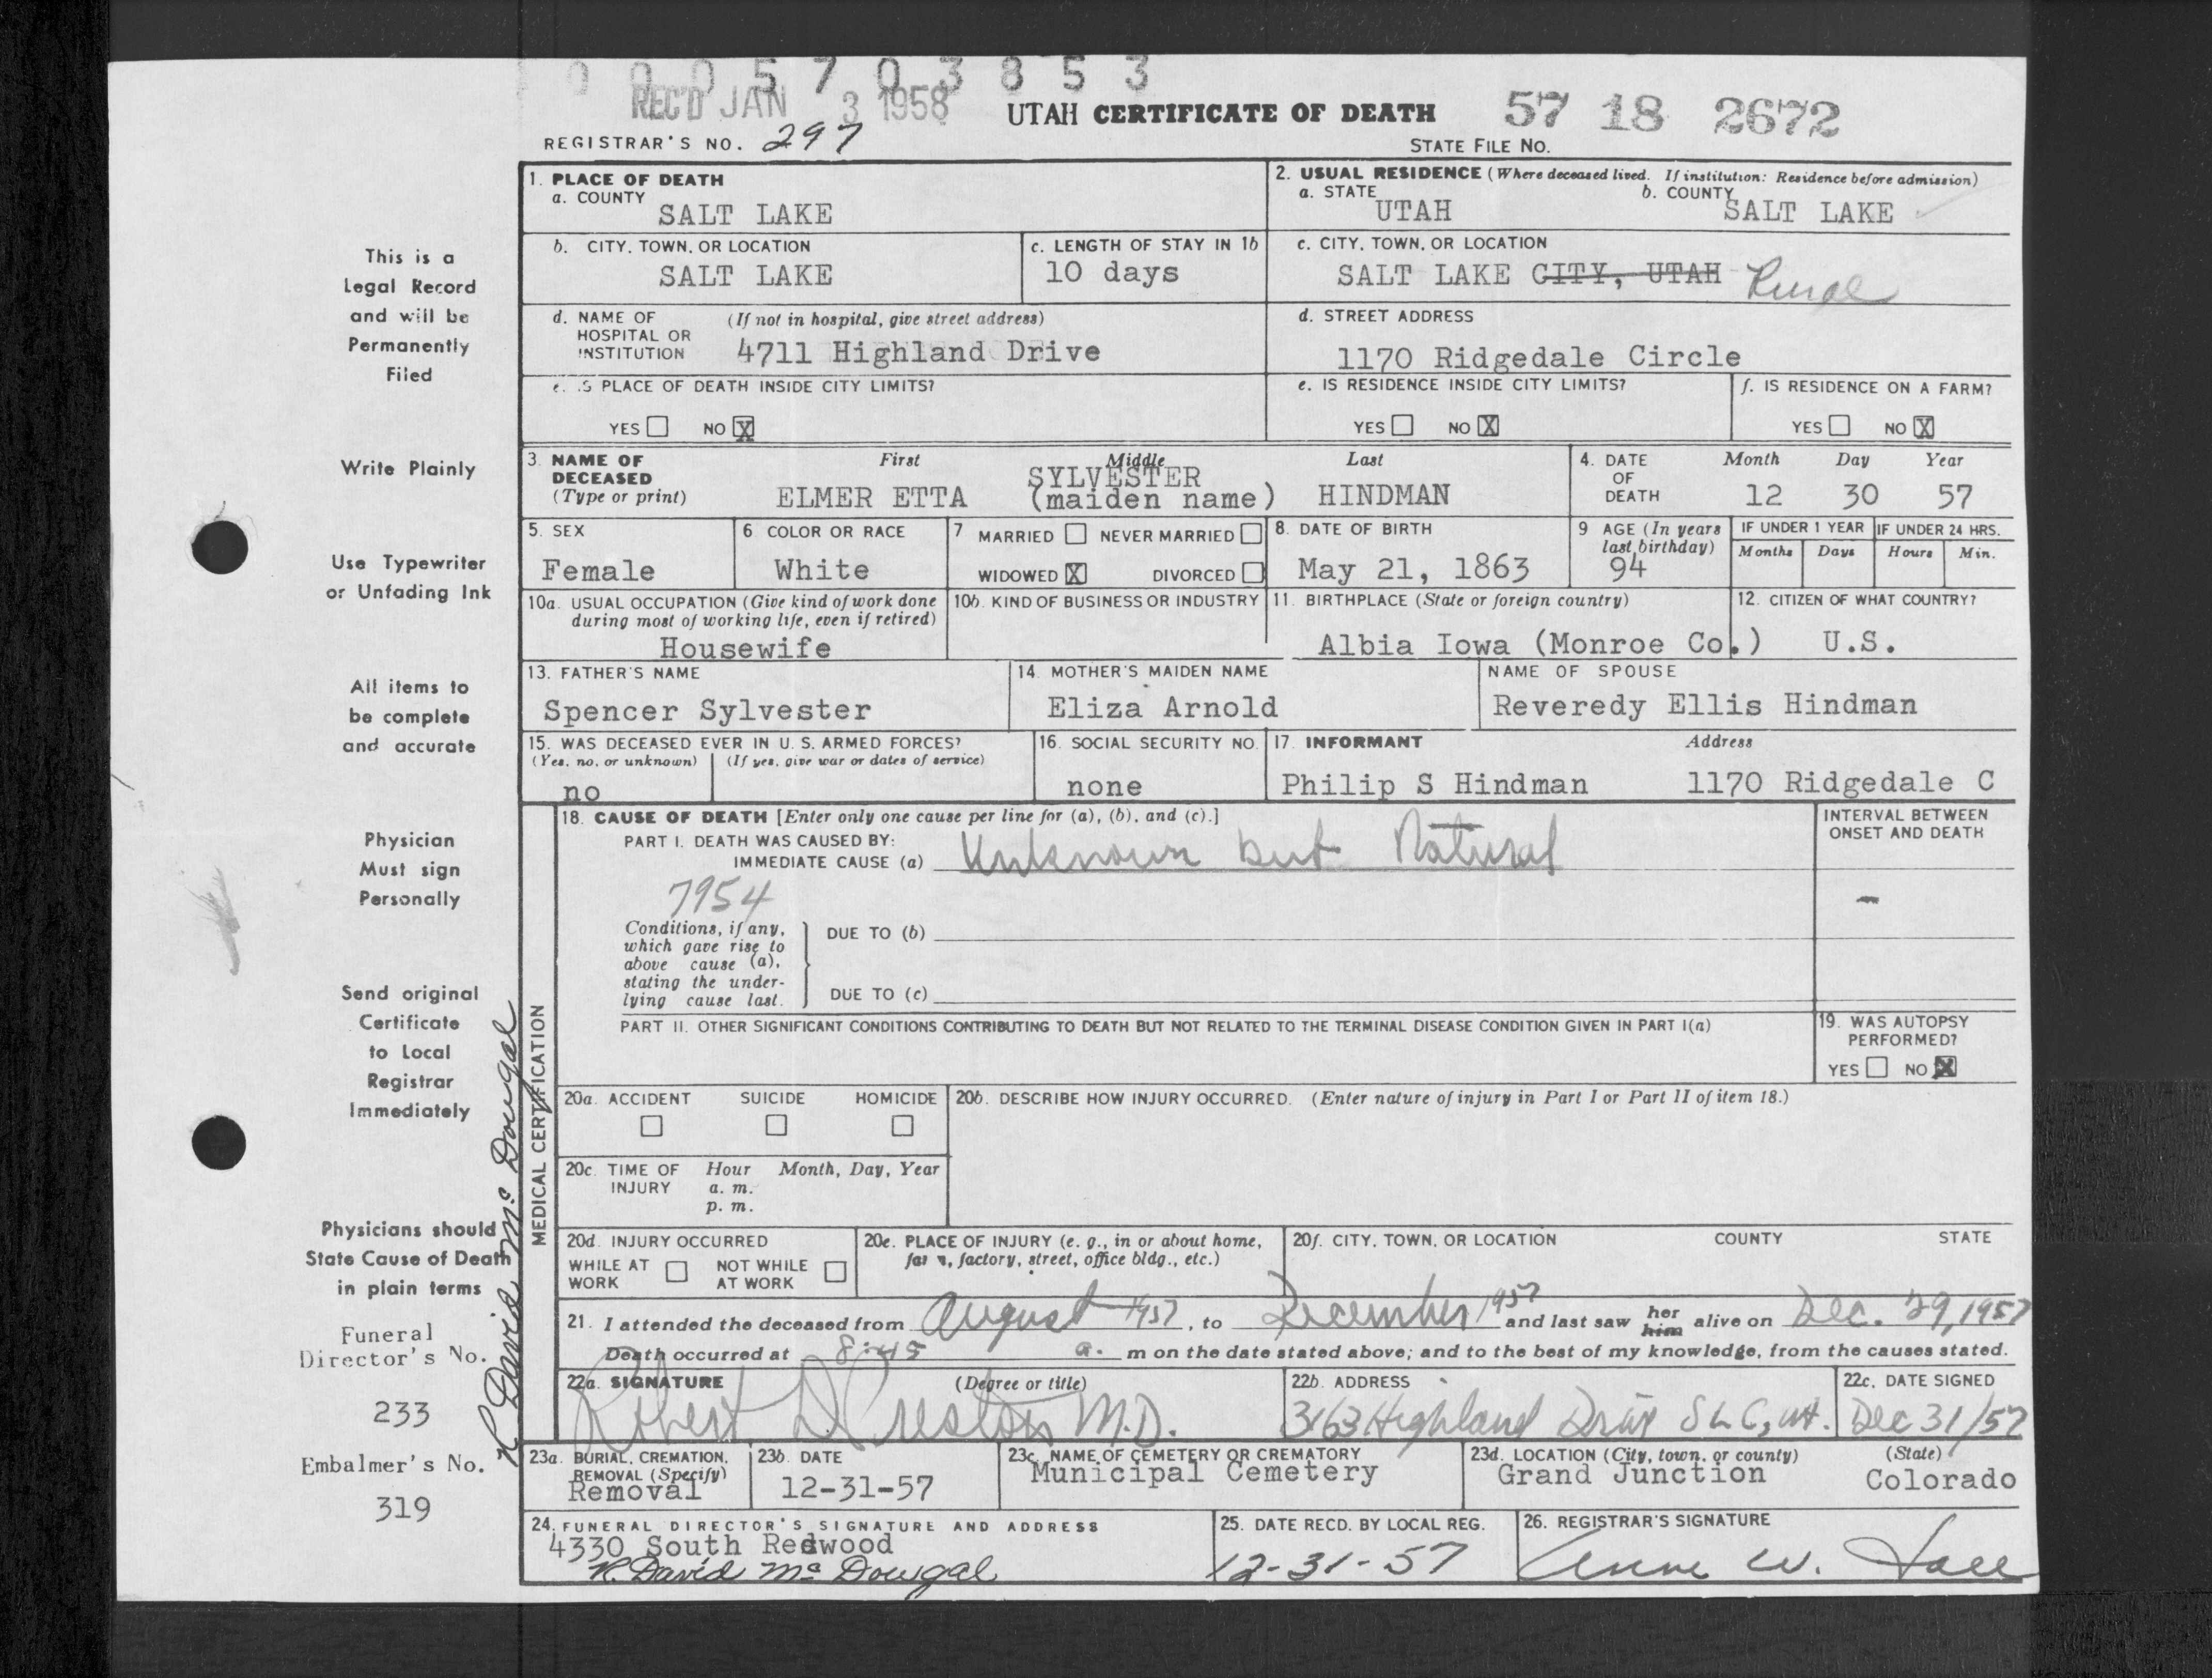 0 0 0 5 7 0 3 8 5 3
REC'D JAN 3 1958 UTAH CERTIFICATE OF DEATH 57 18 2672
REGISTRAR'S NO. 297 STATE FILE NO.
1. PLACE OF DEATH
a. COUNTY
SALT LAKE
2. USUAL RESIDENCE (Where deceased lived. If institution: Residence before admission)
a. STATE
UTAH
b. COUNTY
SALT LAKE
b. CITY, TOWN, OR LOCATION
SALT LAKE
c. LENGTH OF STAY IN 1b
10 days
c. CITY, TOWN, OR LOCATION
SALT LAKE CITY, UTAH Rural
d. NAME OF HOSPITAL OR INSTITUTION
(If not in hospital, give street address)
4711 Highland Drive
d. STREET ADDRESS
1170 Ridgedale Circle
e. IS PLACE OF DEATH INSIDE CITY LIMITS?
YES NO X
e. IS RESIDENCE INSIDE CITY LIMITS?
YES NO X
f. IS RESIDENCE ON A FARM?
YES NO X
3. NAME OF DECEASED
(Type or print)
First Middle Last
SYLVESTER
ELMER ETTA (maiden name) HINDMAN
4. DATE OF DEATH
Month Day Year
12 30 57
5. SEX
Female
6 COLOR OR RACE
White
7 MARRIED NEVER MARRIED
WIDOWED X DIVORCED
8. DATE OF BIRTH
May 21, 1863
9 AGE (In years last birthday)
94
IF UNDER 1 YEAR IF UNDER 24 HRS.
Months Days Hours Min.
10a. USUAL OCCUPATION (Give kind of work done during most of working life, even if retired)
Housewife
10b. KIND OF BUSINESS OR INDUSTRY
11. BIRTHPLACE (State or foreign country)
Albia Iowa (Monroe Co.)
12. CITIZEN OF WHAT COUNTRY?
U.S.
13. FATHER'S NAME
Spencer Sylvester
14. MOTHER'S MAIDEN NAME
Eliza Arnold
NAME OF SPOUSE
Reveredy Ellis Hindman
15. WAS DECEASED EVER IN U. S. ARMED FORCES?
(Yes, no, or unknown) (If yes, give war or dates of service)
no
16. SOCIAL SECURITY NO.
none
17. INFORMANT Address
Philip S Hindman 1170 Ridgedale C
MEDICAL CERTIFICATION
18. CAUSE OF DEATH [Enter only one cause per line for (a), (b), and (c).]
PART I. DEATH WAS CAUSED BY:
IMMEDIATE CAUSE (a) Unknown but Natural
7954
Conditions, if any, which gave rise to above cause (a), stating the under-lying cause last.
DUE TO (b)
DUE TO (c)
INTERVAL BETWEEN ONSET AND DEATH
-
PART II. OTHER SIGNIFICANT CONDITIONS CONTRIBUTING TO DEATH BUT NOT RELATED TO THE TERMINAL DISEASE CONDITION GIVEN IN PART I(a)
19. WAS AUTOPSY PERFORMED?
YES NO X
20a. ACCIDENT SUICIDE HOMICIDE
20b. DESCRIBE HOW INJURY OCCURRED. (Enter nature of injury in Part I or Part II of item 18.)
20c. TIME OF INJURY Hour Month, Day, Year
a. m.
p. m.
20d. INJURY OCCURRED
WHILE AT WORK NOT WHILE AT WORK
20e. PLACE OF INJURY (e. g., in or about home, farm, factory, street, office bldg., etc.)
20f. CITY, TOWN, OR LOCATION COUNTY STATE
21. I attended the deceased from August 1957, to December 1957 and last saw her him alive on Dec. 29, 1957
Death occurred at 8:45 a. m on the date stated above; and to the best of my knowledge, from the causes stated.
22a. SIGNATURE (Degree or title)
Robert D Preston M.D.
22b. ADDRESS
3163 Highland Drive S L C, Ut.
22c. DATE SIGNED
Dec 31/57
23a. BURIAL, CREMATION, REMOVAL (Specify)
Removal
23b. DATE
12-31-57
23c. NAME OF CEMETERY OR CREMATORY
Municipal Cemetery
23d. LOCATION (City, town, or county) (State)
Grand Junction Colorado
24. FUNERAL DIRECTOR'S SIGNATURE AND ADDRESS
4330 South Redwood
R. David McDougal
25. DATE RECD. BY LOCAL REG.
12-31-57
26. REGISTRAR'S SIGNATURE
Anne W.
This is a
Legal Record
and will be
Permanently
Filed
Write Plainly
Use Typewriter
or Unfading Ink
All items to
be complete
and accurate
Physician
Must sign
Personally
Send original
Certificate
to Local
Registrar
Immediately
Physicians should
State Cause of Death
in plain terms
Funeral
Director's No.
233
Embalmer's No.
319
R David McDougal